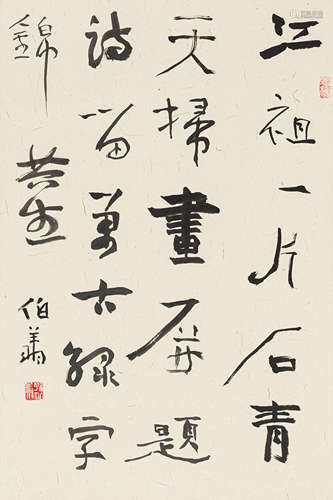 江祖一片石青
天掃畫屏題
詩留萬古綠字
錦苔生
伯